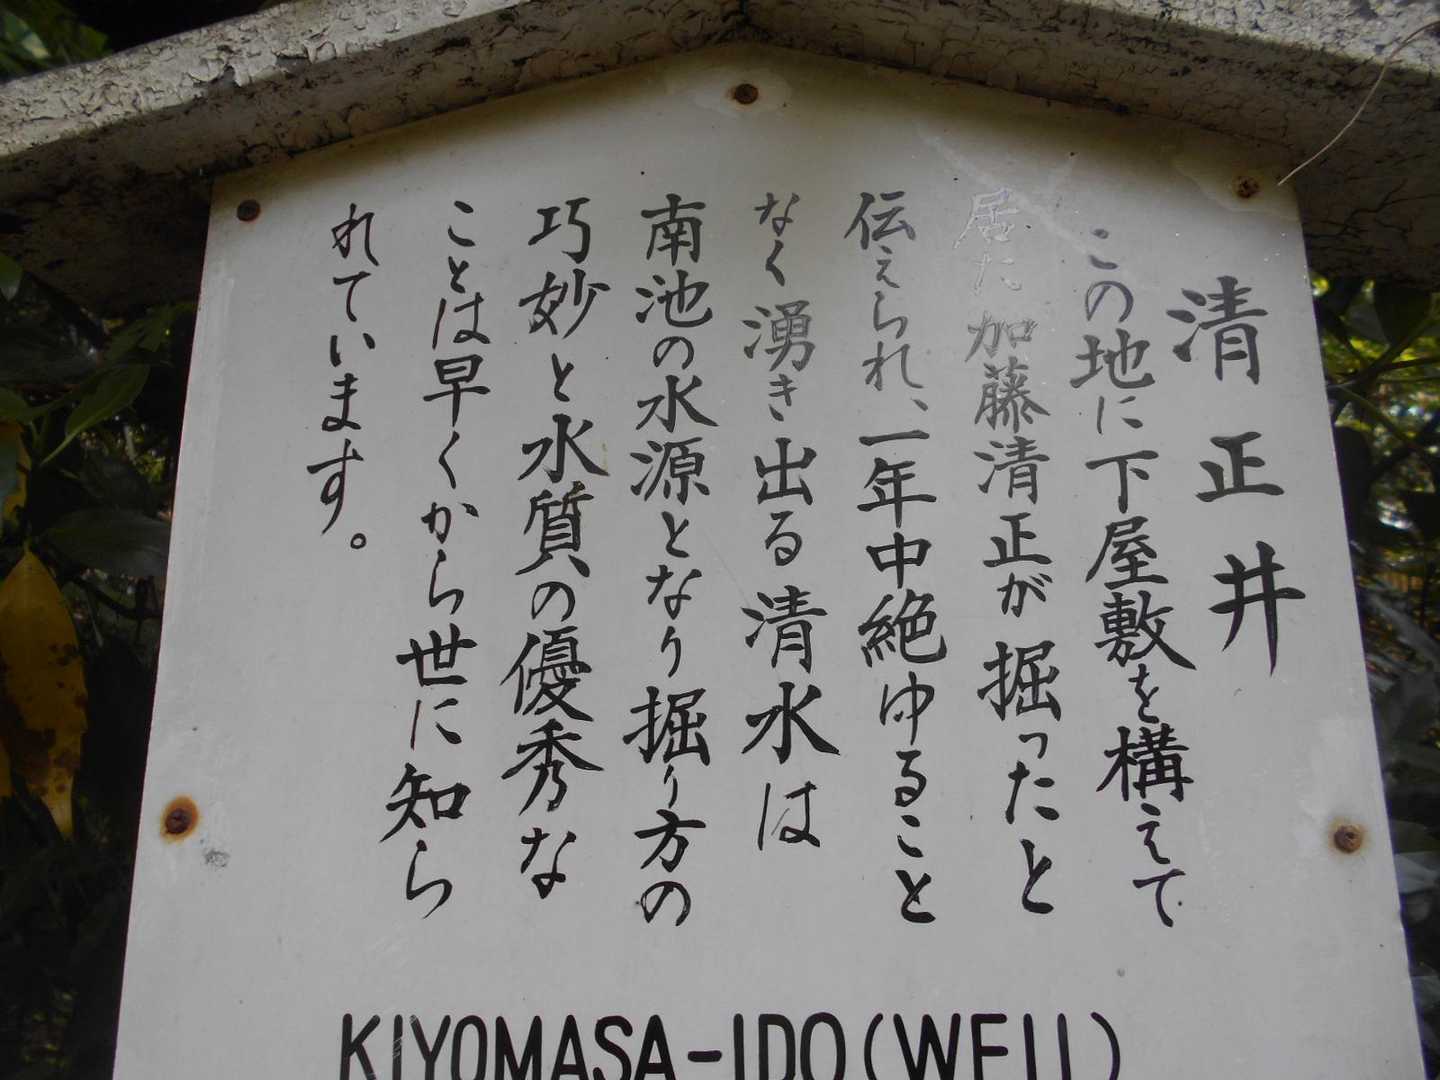 清正井
この地に下屋敷を構えて
居た加藤清正が掘ったと
伝えられ、一年中絶ゆること
なく湧き出る清水は
南池の水源となり掘り方の
巧妙と水質の優秀な
ことは早くから世に知ら
れています。
KIYOMASA-IDO(WELL)